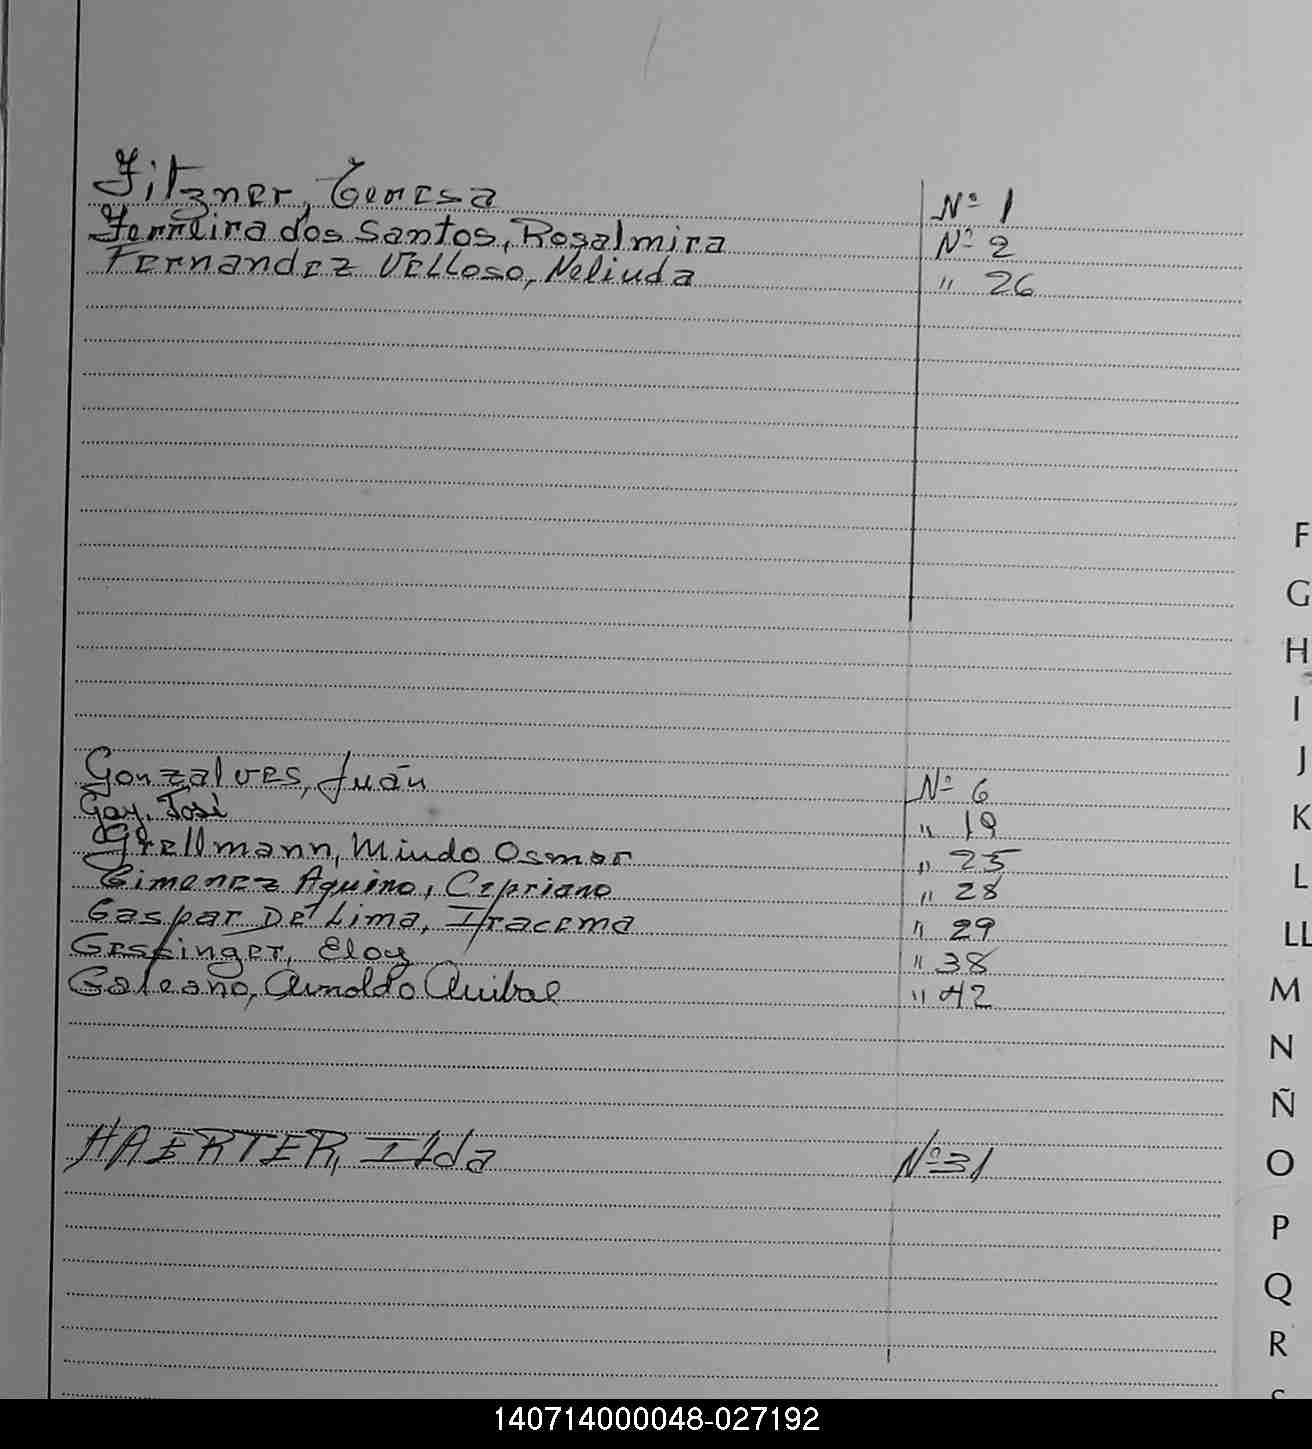 Fitzner, Teresa Nº 1
Ferreira dos Santos, Rosalmira Nº 2
Fernandez Velloso, Nelinda " 26
F
G
H
I
J
Gonzalves, Juán Nº 6
Gay, José " 19
K
Grellmann, Mindo Osmar " 25
Gimenez Aquino, Cipriano " 28
L
Gaspar De Lima, Iracema " 29
LL
Gessinger, Eloy " 38
Galeano, Arnoldo Anibal " 42
M
N
Ñ
HAERTER, Ilda Nº 31
O
P
Q
R
S
140714000048-027192